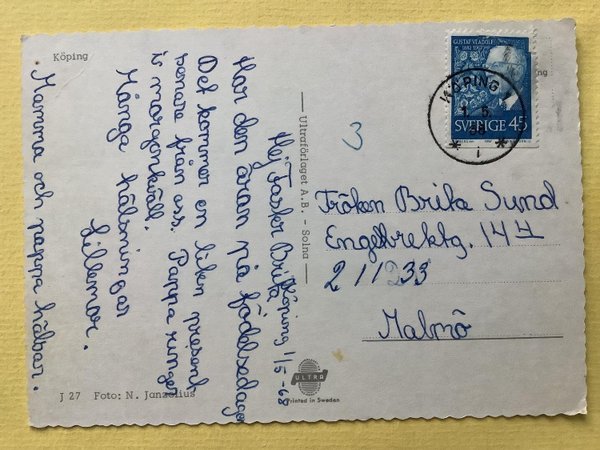 Köping
Köping 1/5-68
Hej Faster Brita
Har den äran på födelsedagen
Det kommer en liten present
senare från oss. Pappa ringer
i morgonkväll.
Många hälsningar
Lillemor.
Mamma och pappa hälsar.
J 27 Foto: N. Janzelius
Ultraförlaget A.B. - Solna
ULTRA
Printed in Sweden
3
GUSTAF VI ADOLF
SVERIGE 45
KÖPING 1
1. 5.
68
* i *
Fröken Brita Sund
Engelbrektg. 144
211233
Malmö